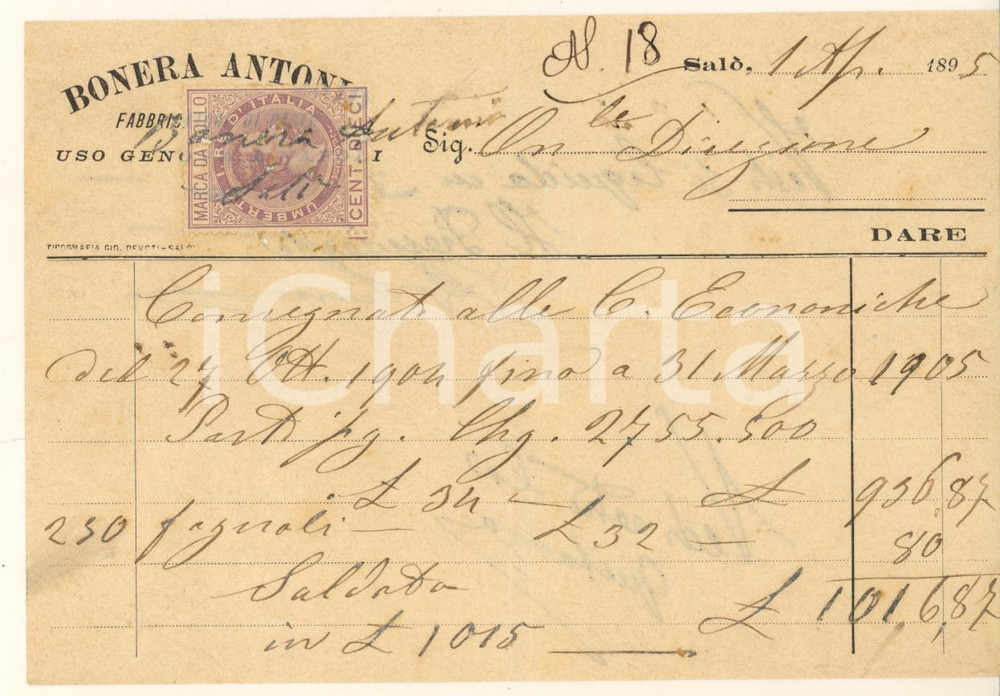 N. 18
Salò, 1 Ap. 1895
BONERA ANTONI
FABBRIC
USO GENO I
MARCA DA BOLLO
UMBERTO I RE D'ITALIA
CENT. DIECI
Bonera Antonio
Salò
Sig. On le Direzione
TIPOGRAFIA GIO. DEVOTI-SALO'
DARE
Consegnato alle C. Economiche
dal 27 Ott. 1904 fino a 31 Marzo 1905
iCharta
Chg. 2755.500
£ 34 — £ 936,87
250 fagnoli — £ 32 — 80
Saldato £ 1016,87
in £ 1015